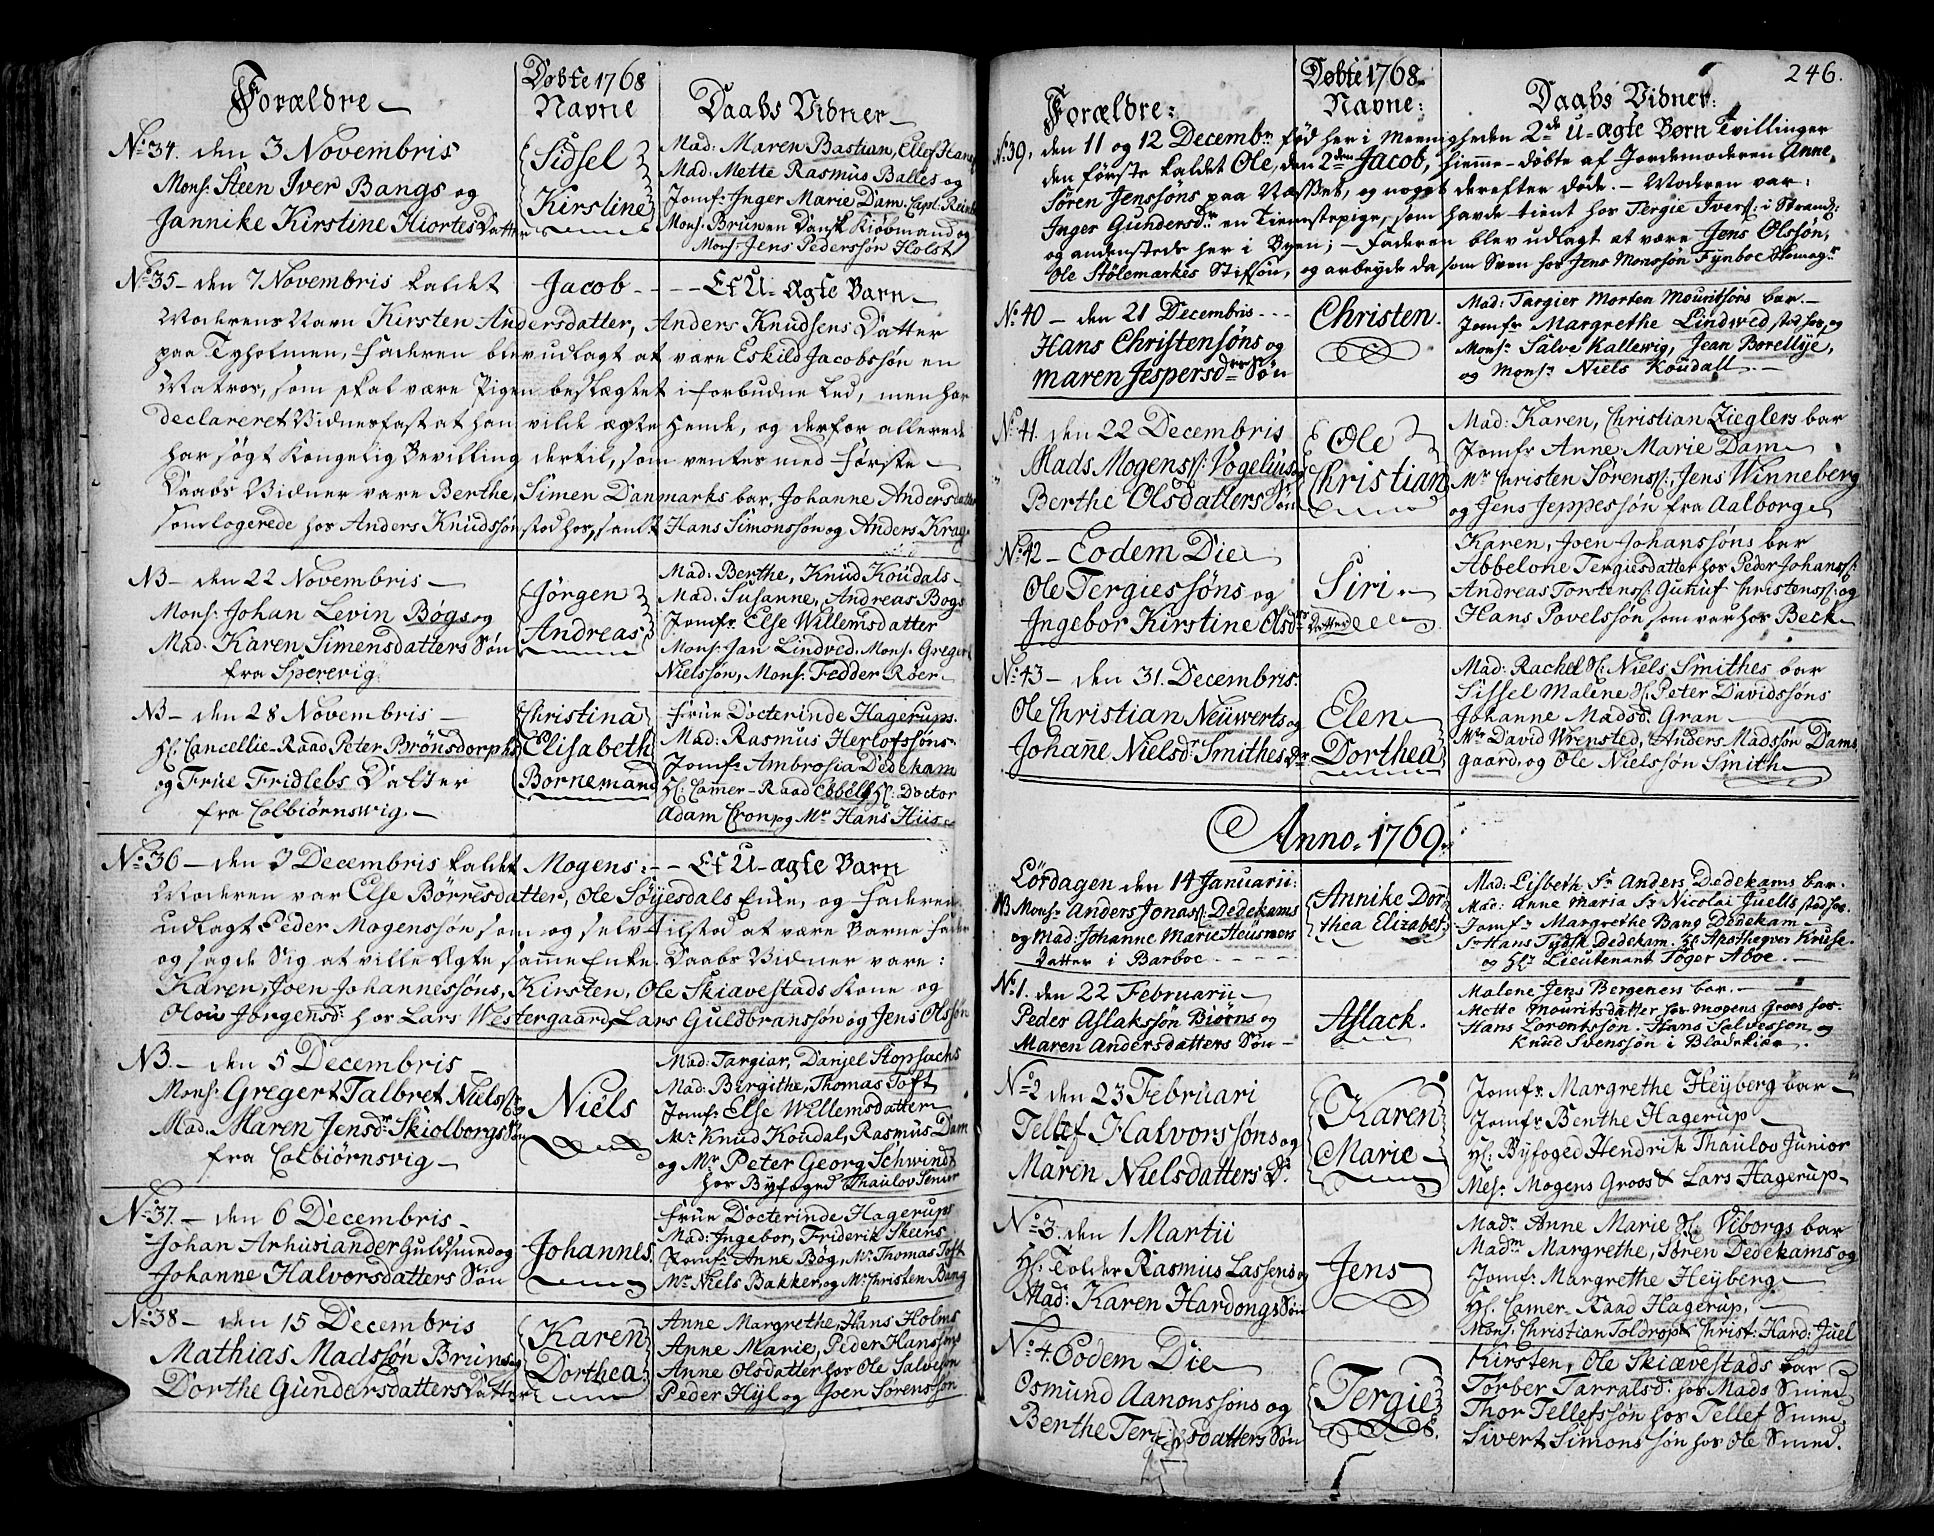 Forældre
Døbte 1768
Navne
Daabs Vidner
No. 34. den 3 Novembris
Mons. Steen Iver Bangs og
Jannike Kirstine Hiortes Datter
Sidsel
Kirstine
Mad: Maren Bastian, Ellef Hans
Mad: Mette Rasmus Balles og
Jomfr: Inger Marie Dam. Capt. Reinh
Mons. Brun en Dansk Kiøbmand og
Mons. Jens Pederssøn Holst
No. 35 - den 7 Novembris kaldet Jacob - - Et U-ægte Barn
Moderens Navn Kirsten Andersdatter, Anders Knudsens Datter
paa Tyholmen, Faderen blev udlagt at være Eskild Jacobssøn en
Matros, som skal være Pigen beslægtet i forbudne Led, men har
declareret Vidnerfast at han vilde ægte Hende, og derfor allerede
har søgt Kongelig Bevilling dertil, som ventes med første
Daabs Vidner vare Berthe, Simen Danmarks bar, Johanne Andersdatter
som logerede hos Anders Knudssøn stod hos, samt Hans Simonssøn og Anders Krag
NB - den 22 Novembris
Mons. Johan Levin Bøgs og
Mad. Karen Simensdatters Søn
fra Sperevig
Jørgen
Andreas
Mad: Berthe, Knud Koudals
Mad: Susanne, Andreas Bøgs
Jomfr: Else Willemsdatter
Mons. Jan Lindved. Mons. Gregert
Nielssøn, Mons. Fedder Røer
NB - den 28 Novembris
Hl. Cancellie-Raad Peter Brønsdorphs
og Frue Fridlebs Datter
fra Colbiørnswig
Christina
Elisabeth
Bornemand
Frue Docterinde Hagerups
Mad: Rasmus Herlofssøns
Jomfr: Ambrosia Dedekam
Hl: Camer-Raad Ebbel, Hl: Doctor
Adam Cron, og Mr. Hans Huus
No. 36 - den 3 Decembris kaldet Mogens: - - Et U-ægte Barn
Moderen var Else Børresdatter, Ole Søyesdals Enke, og Faderen
udlagt Peder Mogenssøn som og selv tilstod at være Barne Fader
og sagde Sig at ville Ægte samme Enke. Daabs Vidner vare:
Karen, Joen Johannessøns, Kirsten, Ole Skiævestads Kone og
Olou Jørgensd. hos Lars Westergaard, Lars Guldbranssøn og Jens Olssøn
NB. - den 5 Decembris
Mons. Gregert Talbret Nielss. og
Mad. Maren Jensdr. Skiolborgs Søn
fra Colbiørnsvig
Niels
Mad: Targiar, Daniel Stopsachs
Mad: Bergithe, Thomas Toft
Jomfr: Else Willemsdatter
Mr. Knud Koudal, Rasmus Dam
og Mr. Peter Georg Schwindt
hos Byfoged Thaulov Senior
No. 37. - den 6 Decembris
Johan Arhusiander Guldsmed og
Johanne Halvorsdatters Søn
Johannes
Frue Docterinde Hagerups
Mad: Ingebor, Friderik Skeens
Jomfr: Anne Bøg, Mr. Thomas Toft
Mr. Niels Bakker, og Mr. Christen Bang
No. 38 - den 15 Decembris
Mathias Madssøn Bruns og
Dorthe Gundersdatters Datter
Karen
Dorthea
Anne Margrethe, Hans Holms
Anne Marie, Peder Hanssøns
Anne Olsdatter hos Ole Salvesøn
Peder Hyl og Joen Sørenssøn
246.
Forældre:
Døbte 1768
Navne:
Daabs Vidner:
No. 39, den 11 og 12 Decembr. fød her i Meenigheden 2de U-ægte Børn Tvillinger
den første kaldet Ole, den 2den Jacob, hiemme-døbte af Jordemoderen Anne,
Søren Jenssøns paa Næsset, og noget derefter døde. - Moderen var:
Inger Gundersdr. en Tienestepige, som havde tient hos Tergie Iverss. i Strand:
og andenstæds her i Byen; - Faderen blev udlagt at være Jens Olssøn,
Ole Stølemarkes Stifsøn, og arbeyde da som Sven hos Jens Monssøn Fynboe Skomagr.
No. 40 - den 21 Decembris
Hans Christensøns og
Maren Jespersdrs. Søn
Christen.
Mad: Targier Morten Mouritsøns bar.
Jomfr. Margrethe Lindwed stod hos, og
Mons. Salve Kallewig, Jean Borellye,
og Mons. Niels Koudall
No. 41. den 22 Decembris
Mads Mogenss: Vogelius og
Berthe Olsdatters Søn
Ole
Christian
Mad: Karen, Christian Zieglers bar
Jomfr: Anne Marie Dam
Mr Christen Sørenss:, Jens Winneberg
og Jens Jeppessøn fra Aalborg
No. 42 - Eodem Die
Ole Tergiessøns og
Ingebor Kirstine Olsdrs Datter
Siri.
Karen, Joen Johanssøns bar
Abbelone Tergiesdatter hos Peder Johanss:
Andreas Torstenss: Gunuf Christenss: og
Hans Povelssøn som var hos Beck
No. 43 - den 31. Decembris.
Ole Christian Neüwerts og
Johanne Nielsdr. Smithes Dr
Elen
Dorthea
Mad: Rachel Sl. Niels Smithes bar
Sissel Malene Sl. Peter Davidssøns
Johanne Madsd. Gran
Mr. David Wrensted, Anders Madssøn Dams
gaard, og Ole Nielssøn Smith
Anno. 1769.
Lördagen den 14 Januarii:
NB Monsr Anders Jonass: Dedekams
og Mad: Johanne Marie Heüsmers
Datter i Barboe
Annike Dor
thea Elizabet
Mad: Lisbeth Sr. Anders Dedekams bar.
Mad: Anne Maria Sr Nicolai Juells stod hos.
Jomfr Margrethe Bang Dedekam
Sr Hans Tydsk Dedekam. Hl Apotheqver Kruse.
og Hl. Lieutenant Töger Aboe.
No. 1. den 22 Februarii
Peder Aslakssøn Biørns og
Maren Andersdatters Søn
Aslack.
Malene Jens Bergeners bar.
Mette Mouritsdatter hos Mogens Groos hos.
Hans Lorentssøn. Hans Salvessøn, og
Knud Svenssøn i Blødekiær.
No. 2 den 23 Februari
Tellef Halvorssøns og
Maren Nielsdatters Dr.
Karen
Marie
Jomfr. Margrethe Heyberg bar
Jomfr: Benthe Hagerup
Hl: Byfoged Hendrik Thaulov Junior
Mes. Mogens Groos & Lars Hagerup
No. 3. den 1 Martii
Hl: Tolder Rasmus Lassens og
Mad: Karen Hardongs Søn
Jens
Madm Anne Marie Sl. Viborgs bar
Madm Margrethe, Søren Dedekams og
Jomfr: Margrethe Heyberg
Hl. Camer-Raad Hagerup,
Mons. Christian Toldrop & Christ: Hard: Juel
No. 4. Eodem Die
Osmund Aanonssøns og
Berthe Tergiesdatters Søn
Tergie
Kirsten, Ole Skiævestads bar
Torber Tarralsd. hos Mads Smed
Thor Tellefssøn hos Tellef Smed.
Sivert Simonssøn hos Ole Smed.